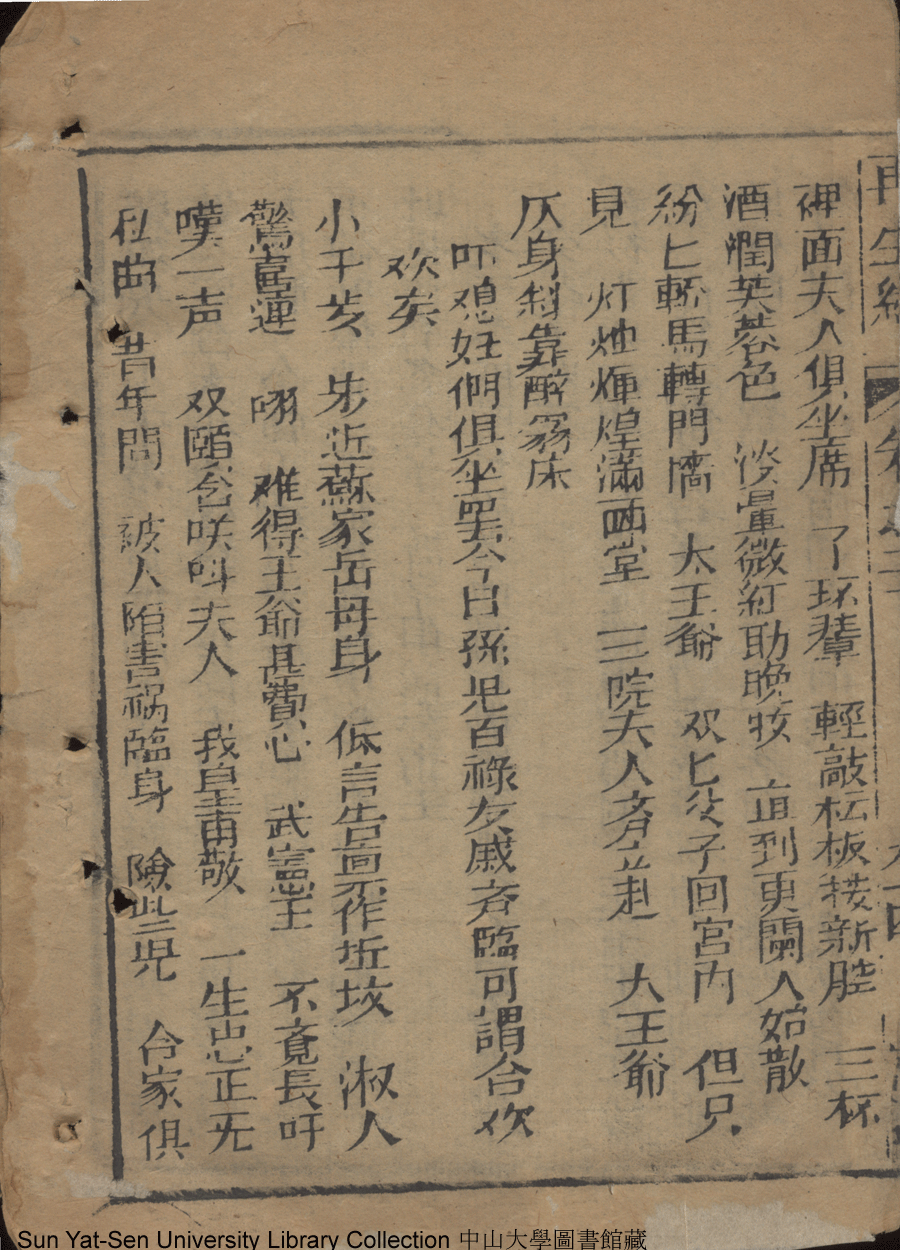 再生緣
裡面夫人俱坐席 了环輩 輕敲松板接新腔 三杯
酒潤芙蓉色 淡暈微紅助晚妆 直到更闌人始散
紛匕轿馬轉門牆 太王爺 双匕父子回宮內 但只
見 灯烛煇煌滿画堂 三院夫人齐立起 大王爺
仄身斜靠醉翁床
吓媳妊們俱坐罢今日孫児百祿友戚齐臨可謂合欢
欢矣
小千岁 步近蘇家岳母身 低言告禀作坵坟 淑人
驚喜連 難得王爺甚費心 武憲王 不竟長吁
嘆一声 双頤含咲呌夫人 我皇甫敬 一生忠正无
私曲 昔年間 被人陷害祸臨身 險些児 合家俱
Sun Yat-Sen University Library Collection 中山大學圖書館藏